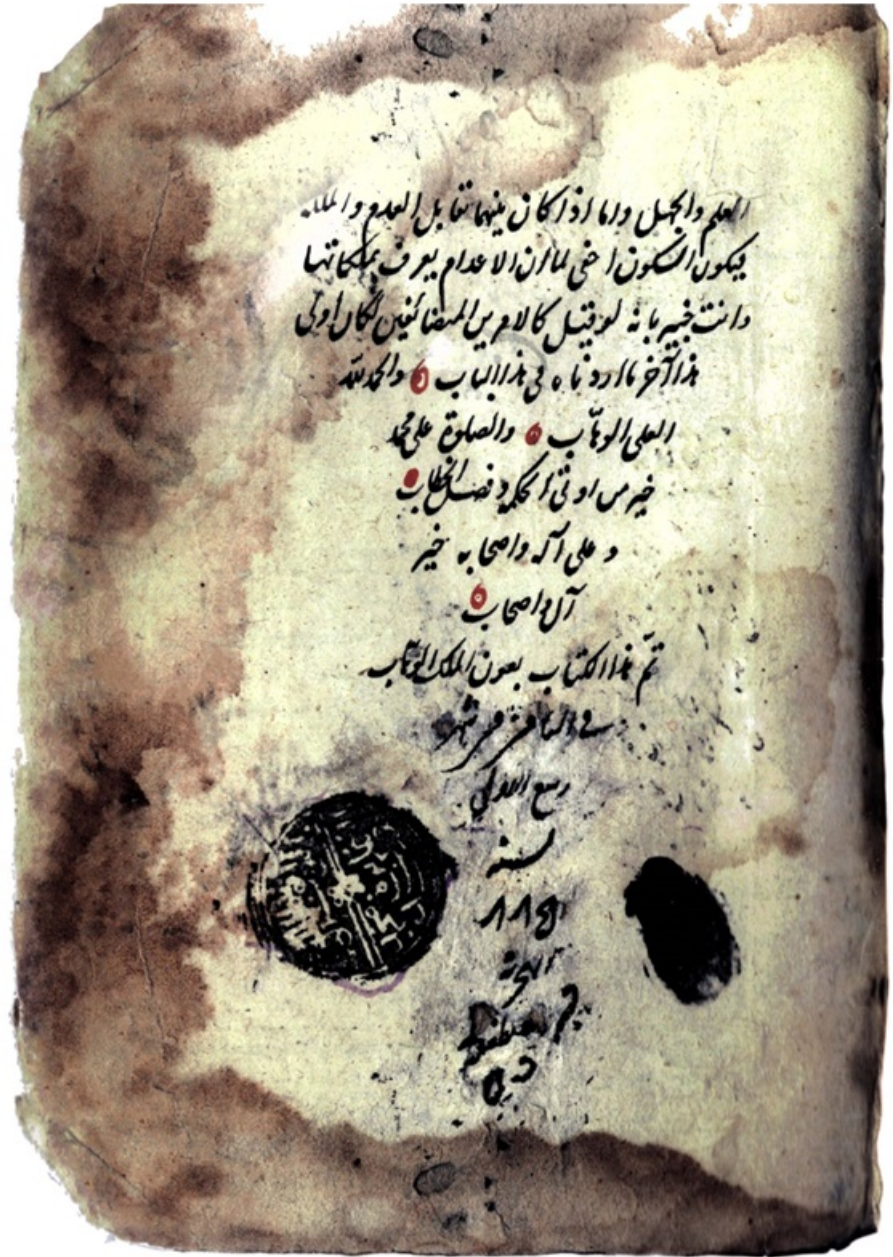 العلم والجهل واما اذا كان بينهما تقابل العدم والملكة
فيكون السكون اخفى لما ان الاعدام يعرف بملكاتها
وانت خبير بانه لو قيل كالامرين المتضائفين لكان اولى
هذا آخر ما اردناه فى هذا الباب والحمد لله
العلى الوهّاب والصلوة على محمد
خير من اوتى الحكمة وفصل الخطاب
و على آله واصحابه خير
آل واصحاب
تمّ هذا الكتاب بعون الملك الوهّاب
فى شهر
ربيع الاول
سنه